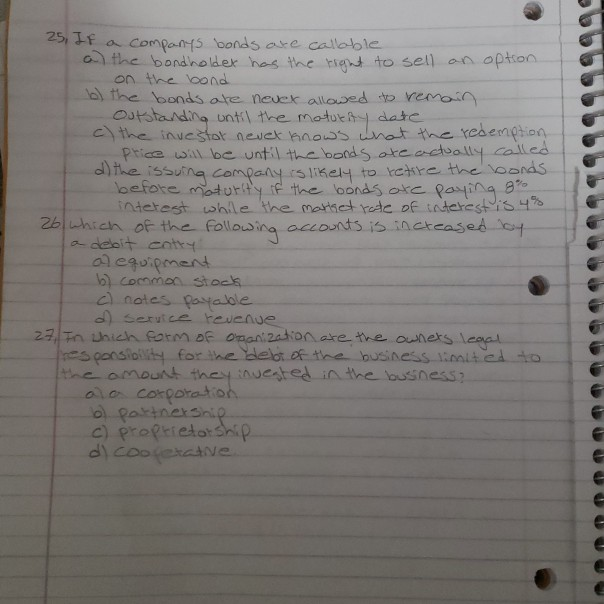 25, If a companys bonds are callable
a) the bondholder has the right to sell an option
on the bond
b) the bonds are never allowed to remain
outstanding until the maturity date
c) the investor never knows what the redemption
price will be until the bonds are actually called
d) the issuing company is likely to retire the bonds
before maturity if the bonds are paying 8%
interest while the market rate of interest is 4%
26, which of the following accounts is increased by
a debit entry
a) equipment
b) common stock
c) notes payable
d) service revenue
27, In which form of organization are the owners legal
responsibility for the debt of the business limited to
the amount they invested in the business?
a) a corporation
b) partnership
c) proprietorship
d) cooperative